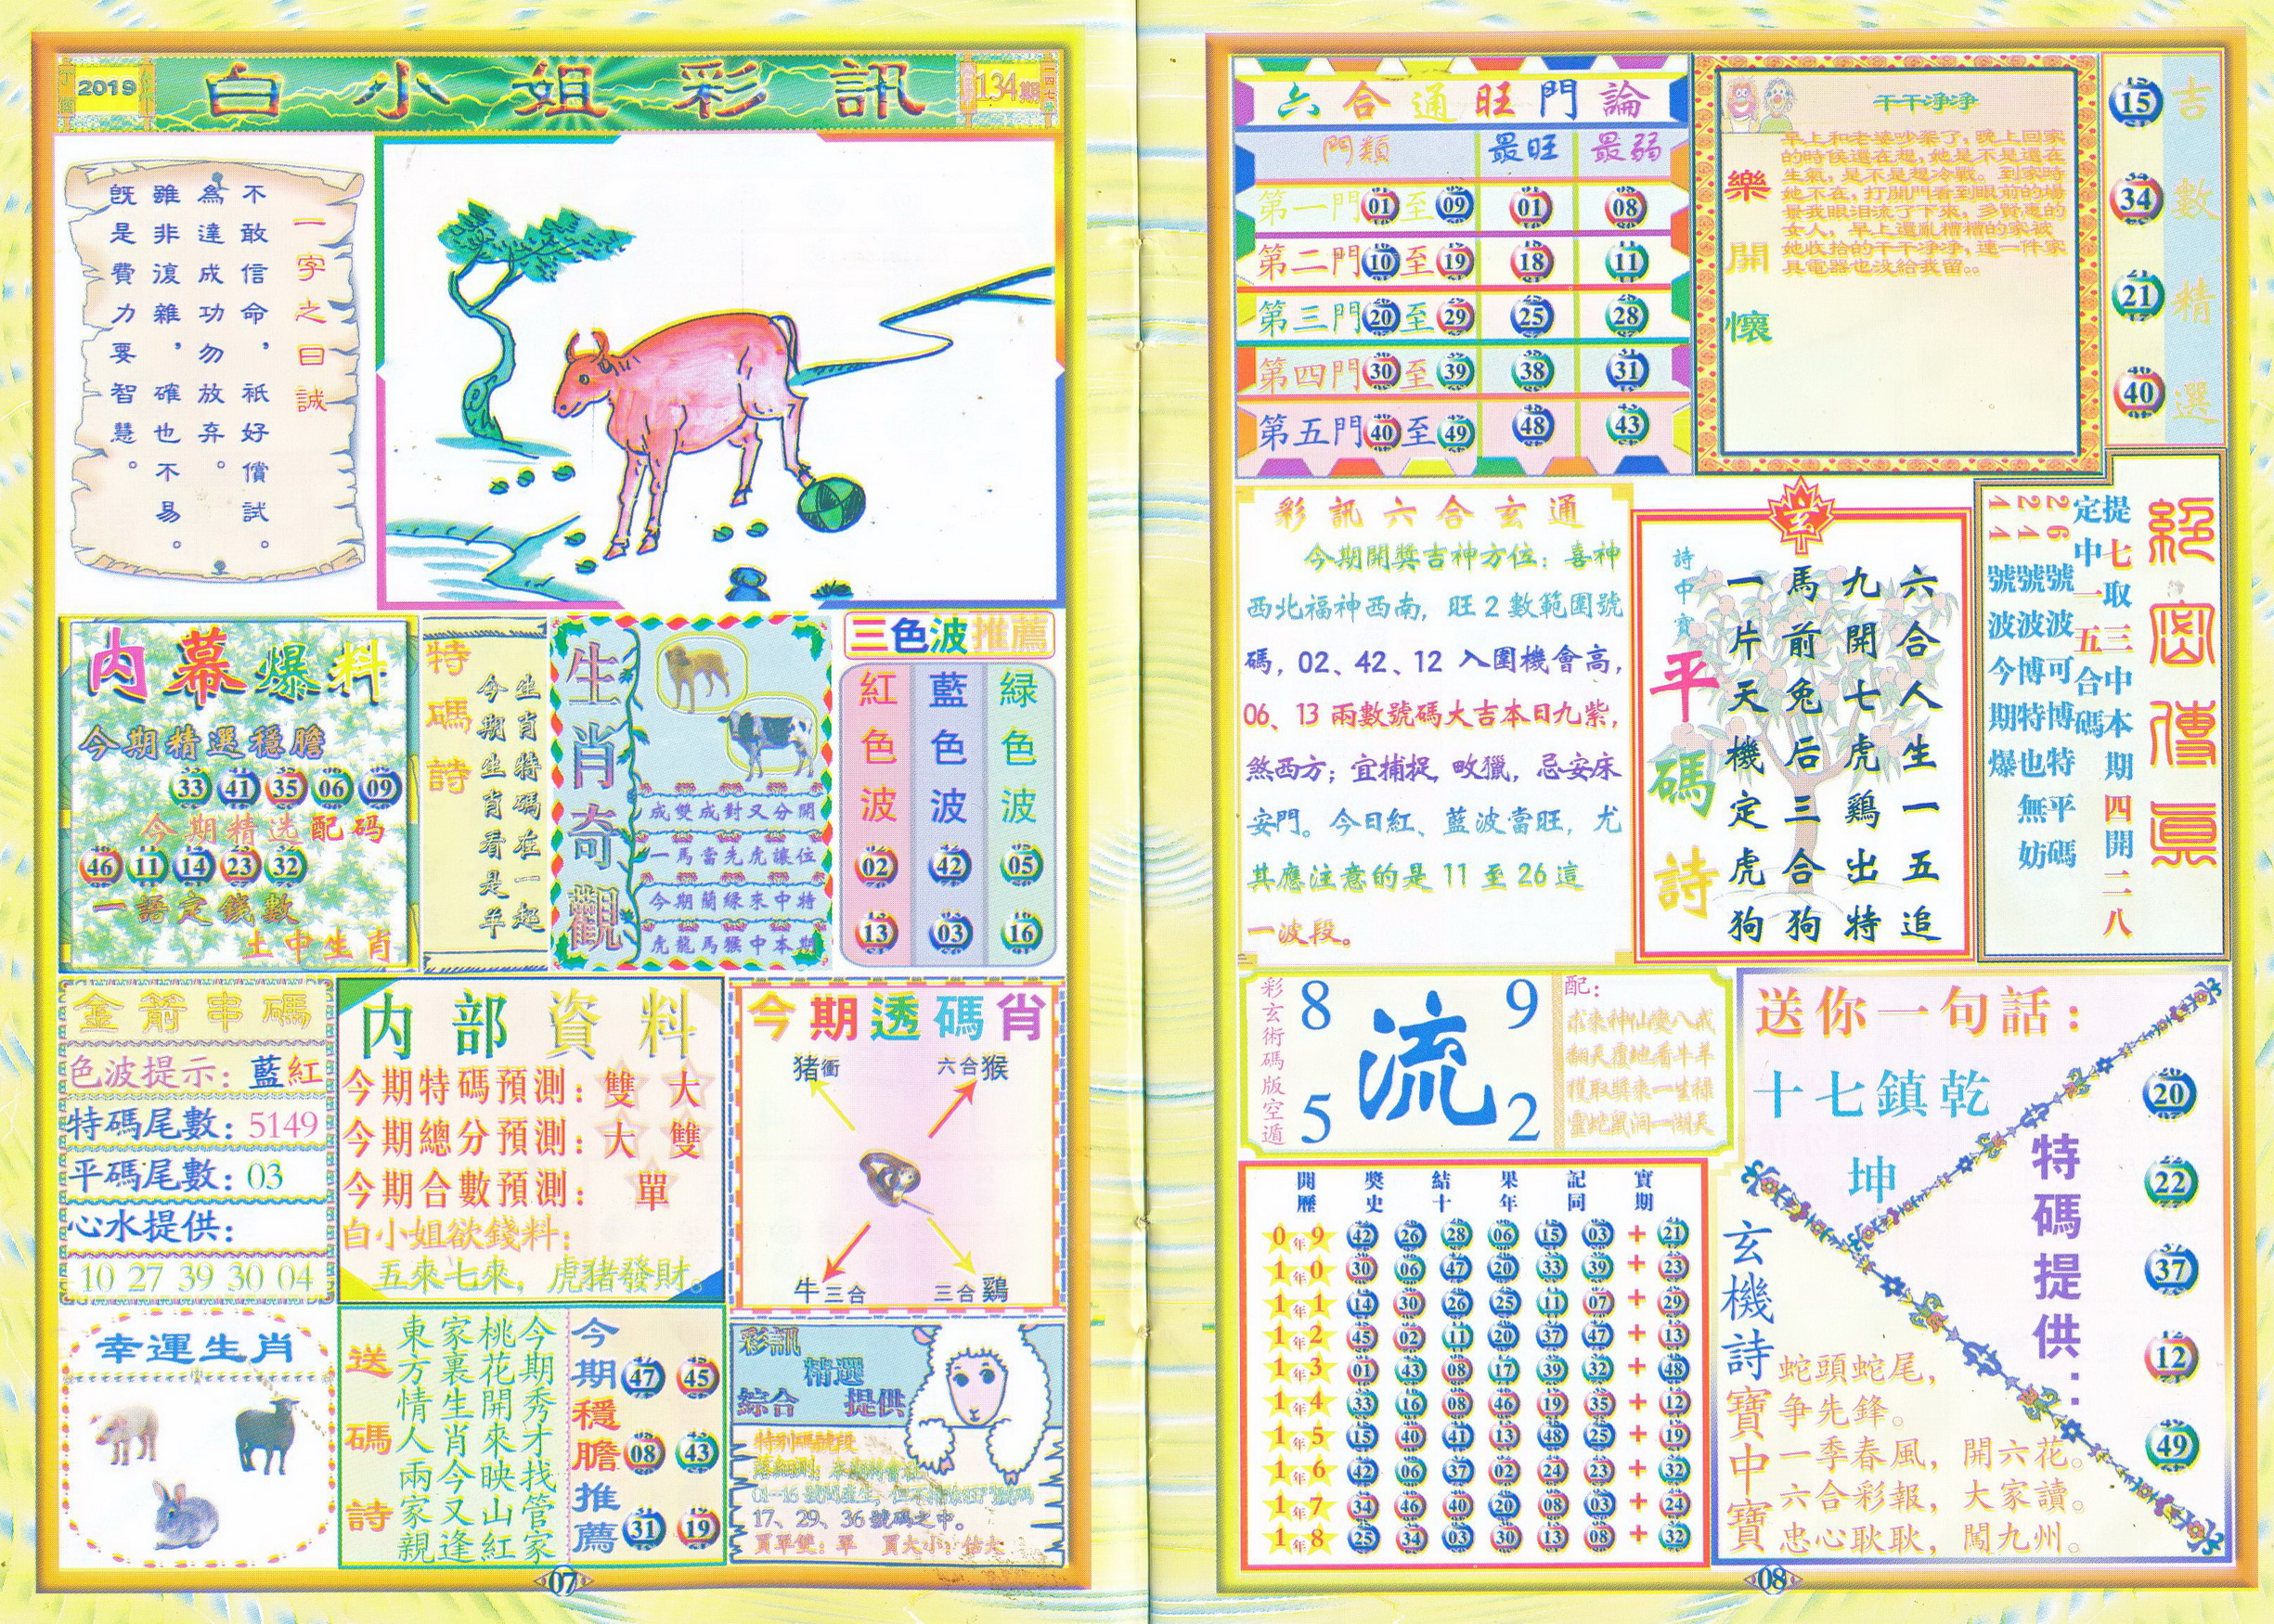 2019
白小姐彩訊
134期
一字之曰誠
不敢信命，祇好償試。
為達成功勿放弃。
雖非復雜，確也不易。
既是費力要智慧。
内幕爆料
今期精選穩膽
33 41 35 06 09
今期精选配码
46 11 14 23 32
一語定錢數
土中生肖
特碼詩
生肖特碼在一起
今期生肖看是羊
生肖奇觀
成雙成對又分開
一馬當先虎讓位
今期蘭緣來中特
虎龍馬猴中本期
三色波推薦
紅色波 藍色波 緑色波
02 42 05
13 03 16
金箭串碼
色波提示：藍紅
特碼尾數：5149
平碼尾數：03
心水提供：
10 27 39 30 04
内部資料
今期特碼預測：雙 大
今期總分預測：大 雙
今期合數預測：單
白小姐欲錢料：
五來七來，虎猪發財。
今期透碼肖
猪衝 六合猴
牛三合 三合鷄
幸運生肖
送碼詩
今期秀才找管家
桃花開來映山紅
家裏生肖今又逢
東方情人兩家親
今期穩膽推薦
47 45
08 43
31 19
彩訊
精選
綜合 提供
特别碼號段
17、29、36 號碼之中。
買單雙：單 買大小：估大
07
六合通旺門論
門類 最旺 最弱
第一門01至09 01 08
第二門10至19 18 11
第三門20至29 25 28
第四門30至39 38 31
第五門40至49 48 43
樂開懷
干干净净
早上和老婆吵架了，晚上回家
的時候還在想，她是不是還在
生氣，是不是想冷戰。到家時
她不在，打開門看到眼前的場
景我眼泪流了下來，多賢惠的
女人，早上還亂糟糟的家被
她收拾的干干净净，連一件家
具電器也没給我留。。
吉數精選
15
34
21
40
彩訊六合玄通
今期開獎吉神方位：喜神
西北福神西南，旺 2 數範圍號
碼，02、42、12 入圍機會高，
06、13 兩數號碼大吉本日九紫，
煞西方；宜捕捉，畋獵，忌安床
安門。今日紅、藍波當旺，尤
其應注意的是 11 至 26 這
一波段。
玄
詩中寶
平碼詩
六合人生一五追
九開七虎鷄出特
馬前兔后三合狗
一片天機定虎狗
絕密傳真
提七取三中本期四開二八
定中一五合碼
26號波可博特平碼
21號波博特也無妨
11號波今期爆
彩玄術碼版空遁
8 9
流
5 2
配：
求来神仙变八戒
翻天覆地看牛羊
獲取獎來一生禄
靈蛇鼠洞一湖天
送你一句話：
十七鎮乾
坤
特碼提供：
20
22
37
12
49
開獎結果記實
歷史十年同期
09年 42 26 28 06 15 03 + 21
10年 30 06 47 20 33 39 + 23
11年 14 30 26 25 11 07 + 29
12年 45 02 11 20 37 47 + 13
13年 01 43 08 17 39 32 + 48
14年 33 16 08 46 19 35 + 12
15年 15 40 41 13 48 25 + 19
16年 42 06 37 02 24 23 + 32
17年 34 46 40 20 08 03 + 24
18年 25 34 03 30 13 08 + 32
玄機詩寶中寶
蛇頭蛇尾，
争先鋒。
一季春風，開六花。
六合彩報，大家讀。
忠心耿耿，闖九州。
08